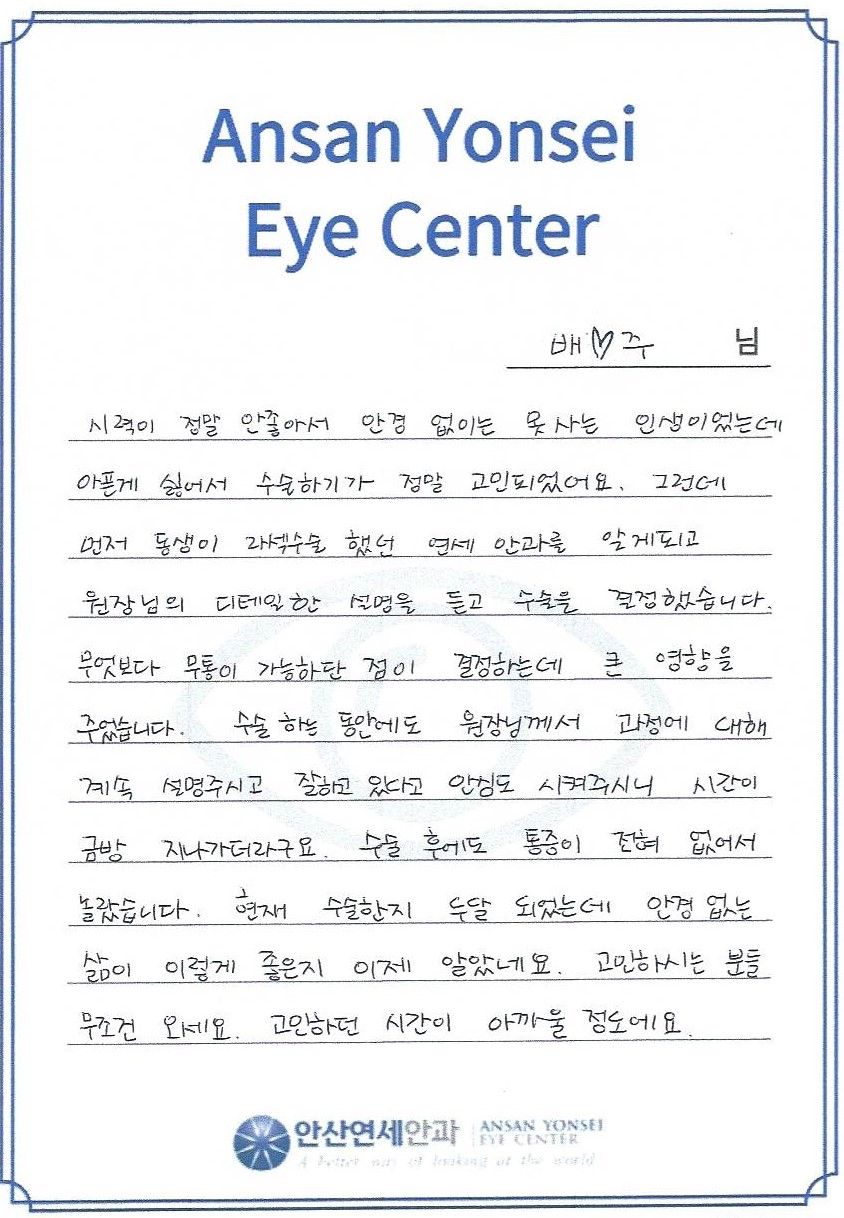 Ansan Yonsei
Eye Center
배♡주 님
시력이 정말 안좋아서 안경 없이는 못 사는 인생이었는데
아픈게 싫어서 수술하기가 정말 고민되었어요. 그런데
먼저 동생이 라섹수술 했던 연세 안과를 알게되고
원장님의 디테일한 설명을 듣고 수술을 결정했습니다.
무엇보다 무통이 가능하단 점이 결정하는데 큰 영향을
주었습니다. 수술 하는 동안에도 원장님께서 과정에 대해
계속 설명주시고 잘하고 있다고 안심도 시켜주시니 시간이
금방 지나가더라구요. 수술 후에도 통증이 전혀 없어서
놀랐습니다. 현재 수술한지 두달 되었는데 안경 없는
삶이 이렇게 좋은지 이제 알았네요. 고민하시는 분들
무조건 오세요. 고민하던 시간이 아까울 정도에요.
안산연세안과 ANSAN YONSEI
EYE CENTER
A better way of looking at the world